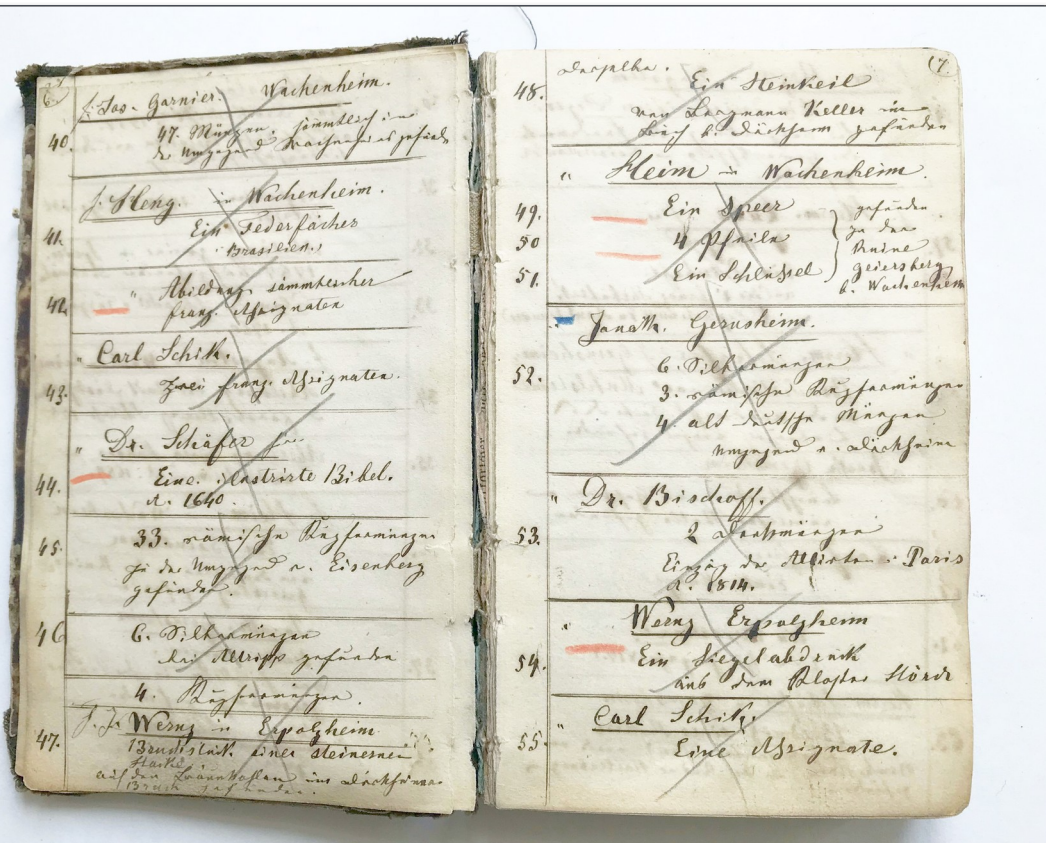 6.
J. Jos. Garnier. Wachenheim.
40. 47. Münzen. sämmtlich in
der Umgegend Wachenheims gefunden
J. Heng. in Wachenheim.
41. Ein Federfächer
Brasilien.
42. " Abildung sämmtlicher
franz. Assignaten
" Carl Schik.
43. Zwei franz. Assignaten.
" Dr. Schäfer
44. Eine illustrirte Bibel.
v. 1640.
45. 33. römische Kupfermünzen
in der Umgegend v. Eisenberg
gefunden.
46 6. Silbermünzen
bei Altripp gefunden
4. Kupfermünzen.
Werny in Erpolzheim
47. Bruchstück eines steinernen
auf den Braunkohlen im Dürkheimer
Bruch gefunden.
7.
derselbe.
48. Ein Steinkeil
von Bergmann Keller im
Bruch b. Dürkheim gefunden
" Heim in Wachenheim.
49. Ein Speer gefunden
50 4 Pfeile in der
Ruine
51. Ein Schlüssel Geiersberg
b. Wachenheim
" Jonath. Gernsheim.
52. 6. Silbermünzen
3. römische Kupfermünzen
4. alt deutsche Münzen
Umgegend v. Dürkheim
" Dr. Bischoff.
53. 2 Denkmünzen
Einzug der Allirten i. Paris
v. 1814.
" Werny Erpolzheim
54. Ein Siegelabdruck
aus dem Kloster Hördt
" Carl Schik.
55. Eine Assignate.